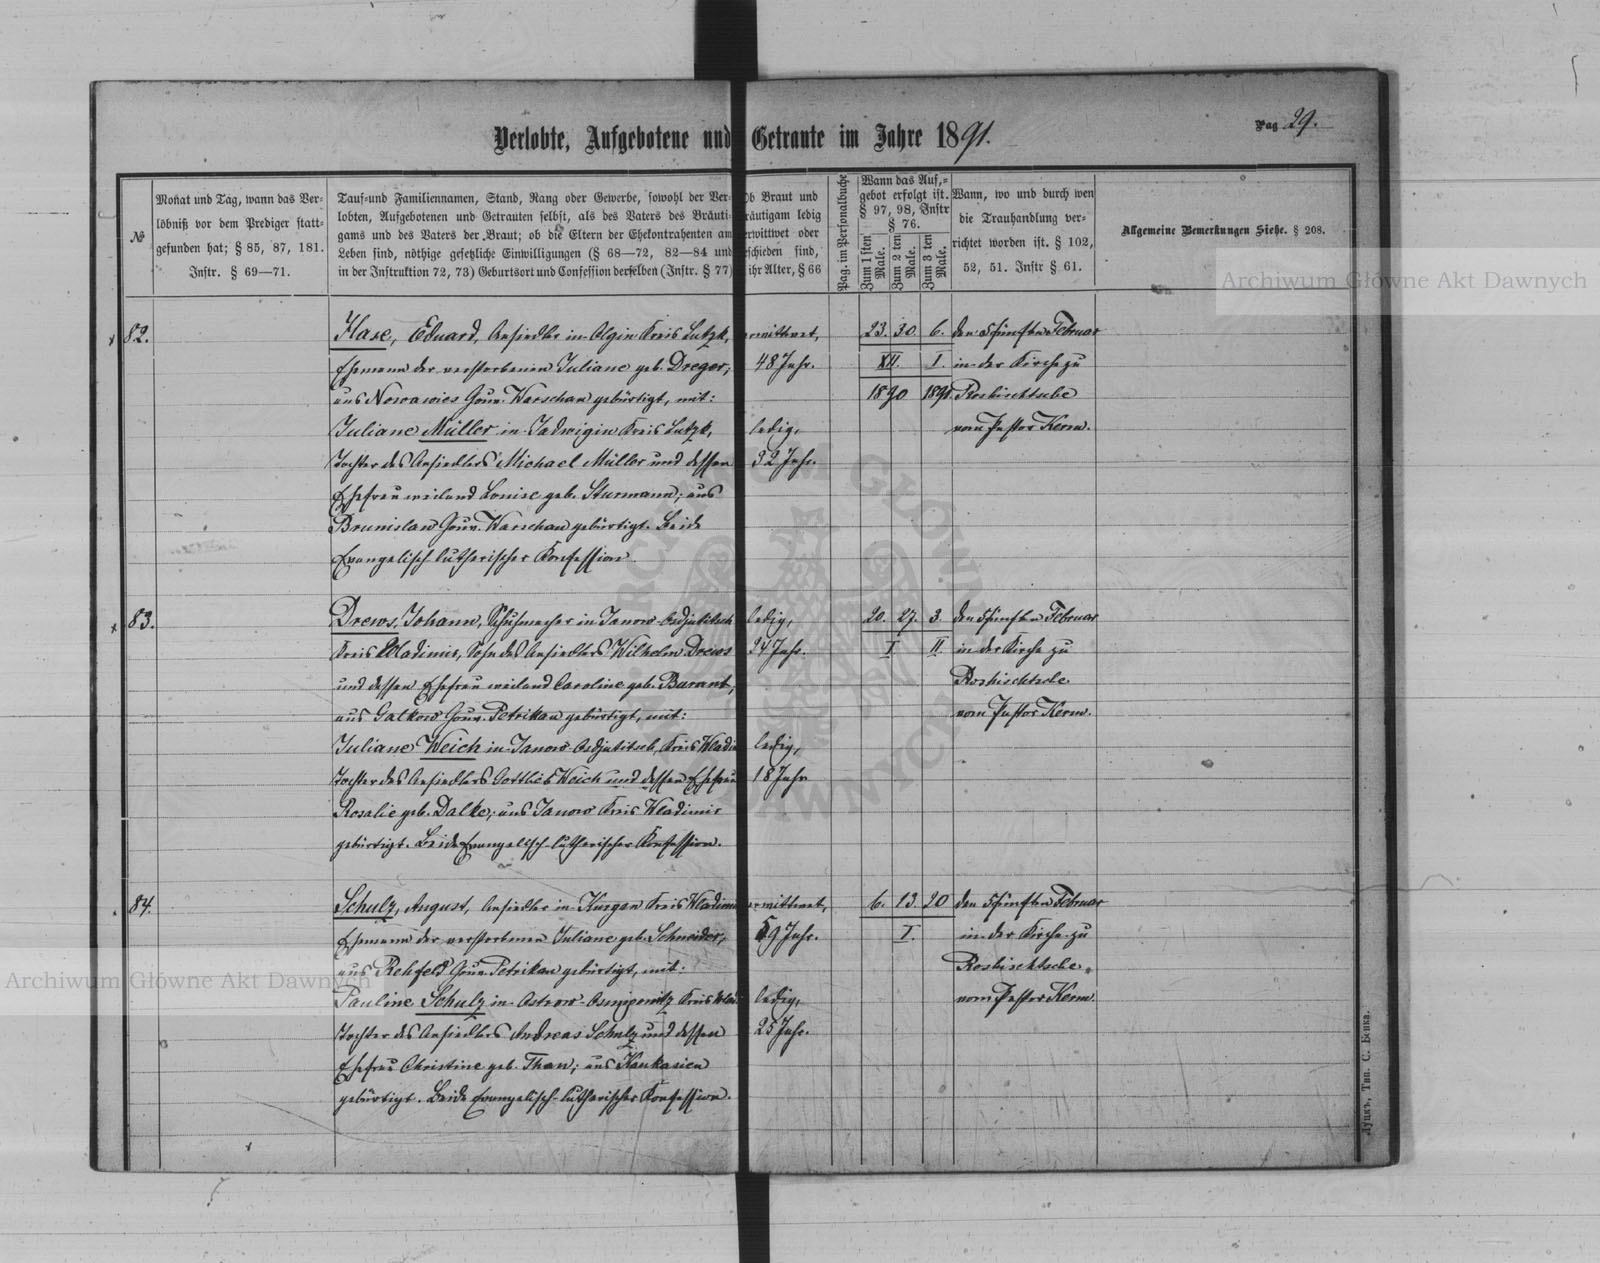 Verlobte, Aufgebotene und Getraute im Jahre 1891.
Pag 29.
№
Monat und Tag, wann das Ver-
löbniß vor dem Prediger statt-
gefunden hat; § 85, 87, 181.
Instr. § 69—71.
Tauf- und Familiennamen, Stand, Rang oder Gewerbe, sowohl der Ver-
lobten, Aufgebotenen und Getrauten selbst, als des Vaters des Bräuti-
gams und des Vaters der Braut; ob die Eltern der Ehekontrahenten am
Leben sind, nöthige gesetzliche Einwilligungen (§ 68—72, 82—84 und
in der Instruktion 72, 73) Geburtsort und Confession derselben (Instr. § 77)
Ob Braut und
räutigam ledig
erwittwet oder
schieden sind,
ihr Alter, § 66
Pag. im Personalbuche
Wann das Auf-
gebot erfolgt ist.
§ 97, 98, Instr
§ 76.
Zum 1 sten Male.
Zum 2 ten Male.
Zum 3 ten Male.
Wann, wo und durch wen
die Trauhandlung ver-
richtet worden ist. § 102,
52, 51. Instr § 61.
Allgemeine Bemerkungen Siehe. § 208.
82.
Hase, Eduard, Ansiedler in Olgin Kreis Lutzk,
Ehemann der verstorbenen Juliane geb. Dreger,
aus Nowawies Gouv. Warschau gebürtigt, mit:
Juliane Müller in Jadwigin Kreis Lutzk,
Tochter des Ansiedlers Michael Müller und dessen
Ehefrau weiland Louise geb. Sturmann; aus
Brunislaw Gouv. Warschau gebürtigt. Beide
Evangelisch-lutherischer Konfession.
erwittwet,
48 Jahr.
ledig,
32 Jahr.
23. 30. 6.
XII. I.
1890 1891.
den Fünften Februar
in der Kirche zu
Roshischtsche
vom Pastor Kerm.
83.
Drews, Johann, Schuhmacher in Janow-Osdjutitsch
Kreis Wladimir, Sohn des Ansiedlers Wilhelm Drews
und dessen Ehefrau weiland Caroline geb. Burant,
aus Galkow Gouv. Petrikau gebürtigt, mit:
Juliane Weich in Janow-Osdjutitsch, Kreis Wladim
Tochter des Ansiedlers Gottlieb Weich und dessen Ehefrau
Rosalie geb. Dalke; aus Janow Kreis Wladimir
gebürtigt. Beide Evangelisch-lutherischer Konfession.
ledig,
24 Jahr.
ledig,
18 Jahr
20. 27. 3.
I II
den Fünften Februar
in der Kirche zu
Roshischtsche
vom Pastor Kerm.
84.
Schulz, August, Ansiedler in Kurgan Kreis Wladimir
Ehemann der verstorbenen Juliane geb. Schneider,
aus Rehfeld Gouv. Petrikau gebürtigt, mit:
Pauline Schulz in Ostrow- Kreis Wlad
Tochter des Ansiedlers Andreas Schulz und dessen
Ehefrau Christine geb. Than; aus Kaukasien
gebürtigt. Beide Evangelisch-lutherischer Konfession.
erwittwet,
59 Jahr.
ledig,
25 Jahr.
6. 13. 20
I.
den Fünften Februar
in der Kirche zu
Roshischtsche
vom Pastor Kerm.
Луцкъ, Тип. С. Бенка.
Archiwum Główne Akt Dawnych
Archiwum Główne Akt Dawnych